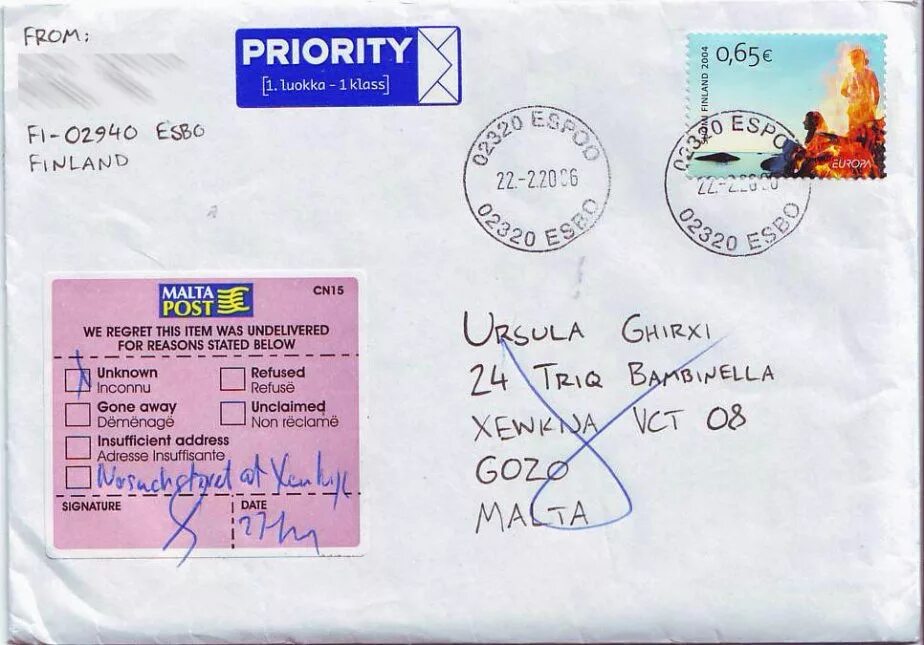 FROM:
FI-02940 ESBO
FINLAND
PRIORITY
[1. luokka - 1 klass]
0,65€
FINLAND 2004
EUROPA
02320 ESPOO
22.-2.2006
02320 ESBO
02320 ESPOO
22.-2.2006
02320 ESBO
MALTA
POST
CN15
WE REGRET THIS ITEM WAS UNDELIVERED
FOR REASONS STATED BELOW
Unknown
Inconnu
Refused
Refusë
Gone away
Dëmënagë
Unclaimed
Non rëclamë
Insufficient address
Adresse Insuffisante
No such street at
SIGNATURE
DATE
URSULA GHIRXI
24 TRIQ BAMBINELLA
XEWKIJA VCT 08
GOZO
MALTA